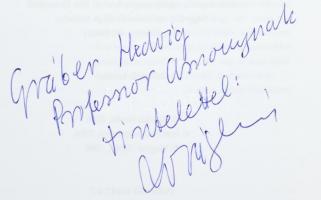 Gráber Hedvig
Professor Asszonynak
tisztelettel: